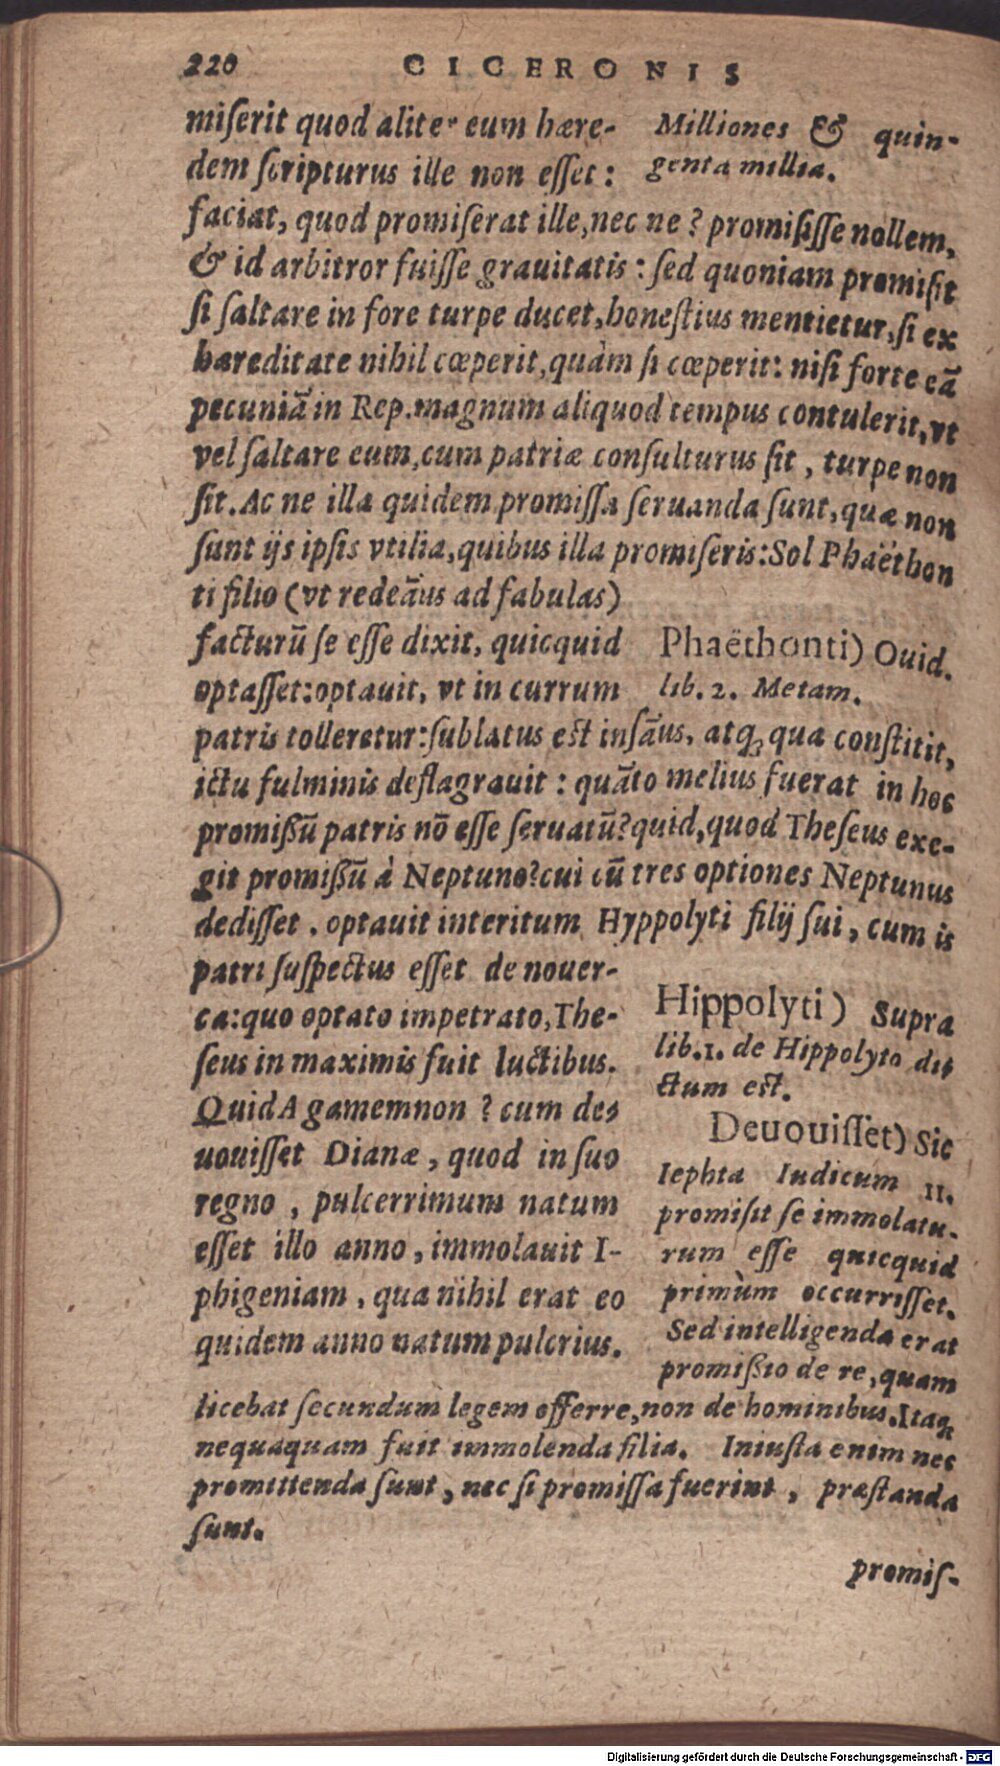 220 CICERONIS
miserit quod aliter eum hære-
dem scripturus ille non esset:
Milliones & quin-
genta millia.
faciat, quod promiserat ille, nec ne? promisisse nollem,
& id arbitror fuisse grauitatis: sed quoniam promisit
si saltare in foro turpe ducet, honestius mentietur, si ex
hæreditate nihil cœperit, quàm si cœperit: nisi forte eā
pecuniā in Rep. magnum aliquod tempus contulerit, vt
vel saltare eum, cum patriæ consulturus sit, turpe non
sit. Ac ne illa quidem promissa seruanda sunt, quæ non
sunt ijs ipsis vtilia, quibus illa promiseris: Sol Phaëthon
ti filio (vt redeāus ad fabulas)
facturū se esse dixit, quicquid
optasset: optauit, vt in currum
Phaëthonti) Ouid.
lib. 2. Metam.
patris tolleretur: sublatus est insāus, atq; qua constitit,
ictu fulminis deflagrauit: quāto melius fuerat in hoc
promißū patris nō esse seruatū? quid, quod Theseus exe-
git promißū à Neptuno? cui cū tres optiones Neptunus
dedisset, optauit interitum Hyppolyti filij sui, cum is
patri suspectus esset de nouer-
ca: quo optato impetrato, The-
seus in maximis fuit luctibus.
Quid Agamemnon? cum de-
uouisset Dianæ, quod in suo
regno, pulcerrimum natum
esset illo anno, immolauit I-
phigeniam, qua nihil erat eo
quidem anno natum pulcrius.
Hippolyti) Supra
lib. 1. de Hippolyto di-
ctum est.
Deuouisset) Sic
Iephta Iudicum 11.
promisit se immolatu-
rum esse quicquid
primùm occurrisset.
Sed intelligenda erat
promißio de re, quam
licebat secundum legem offerre, non de hominibus. Itaq;
nequaquam fuit immolenda filia. Iniusta enim nec
promittenda sunt, nec si promissa fuerint, præstanda
sunt.
promis-
Digitalisierung gefördert durch die Deutsche Forschungsgemeinschaft - DFG